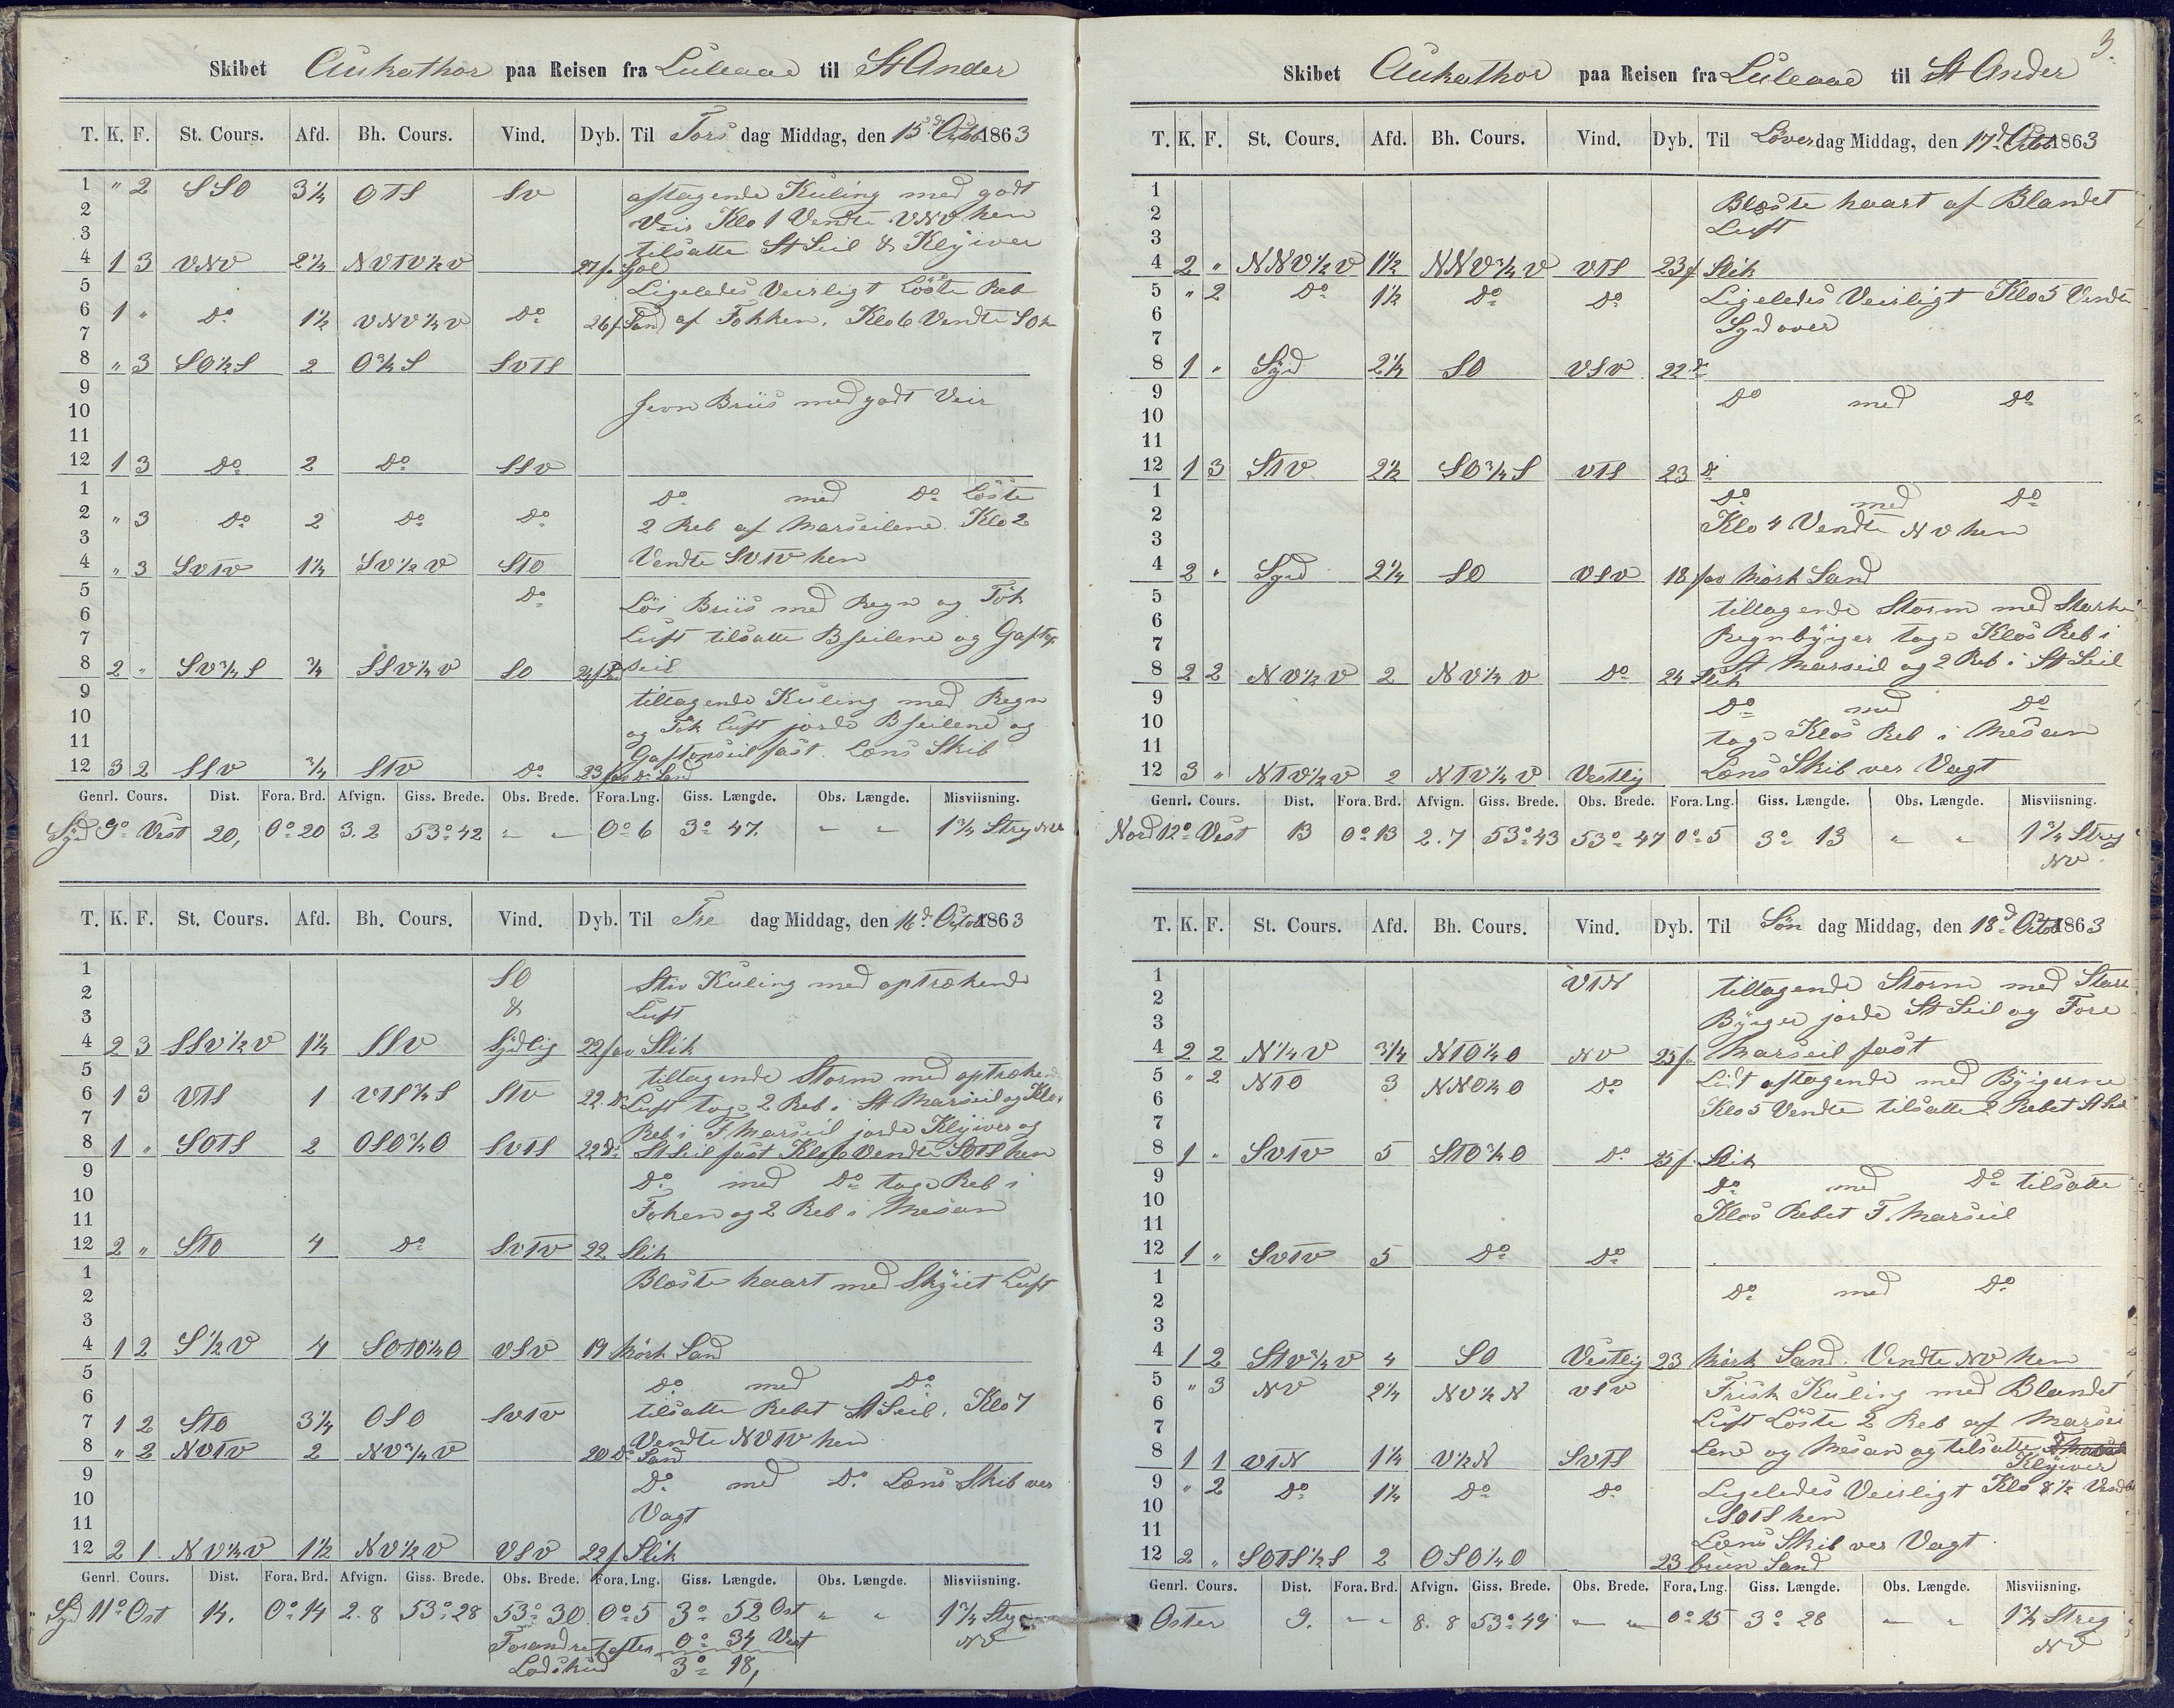 Skibet Aukathor paa Reisen fra Luleaae til St Ander
T. K. F. St. Cours. Afd. Bh. Cours. Vind. Dyb. Til Tors dag Middag, den 15d Octob 1863
1 " 2 SSO 3¼ OTS SV aftagende Kuling med godt
2 Veir Klo 1 Vendte VNV hen
3 tilsatte St Seil & Klyiver
4 1 3 VNV 2¼ NVTV½V 27 f.
5 Ligeledes Veirligt Löste Reb
6 1 " Do 1½ VNV¼V Do 26 f. Sand af Fokken. Klo 6 Vendte SO
7
8 " 3 SO½S 2 O¾S SVTS
9
10 jevn Briis med godt Veir
11
12 1 3 Do 2 Do SSV
1 Do med Do Löste
2 " 3 Do 2 Do Do 2 Reb af Marseilene. Klo 2
3
4 " 3 SVTV 1¼ SV½V STO Vendte SVTV hen
5 Do Löi Briis med Regn og Tök
6
7 Luft tilsatte B seilene og Gaftop
8 2 " SV¾S ¾ SSV¼V SO 24 f. seil
9 tiltagende Kuling med Regn
10 og Tök Luft jorde B seilene og
11 Gaftopseil fast. Lens Skib
12 3 2 SSV ¾ STV Do 23 fav do Sand
Genrl. Cours. Dist. Fora. Brd. Afvign. Giss. Brede. Obs. Brede. Fora. Lng. Giss. Længde. Obs. Længde. Misviisning.
Syd 9o Vest 20, 0o 20 3.2 53o 42 " " 0o 6 3o 47. " " 1¾ Streg NV
T. K. F. St. Cours. Afd. Bh. Cours. Vind. Dyb. Til Fre dag Middag, den 16d Octob 1863
1 SO Stiv Kuling med optrækende
2
3 & Luft
4 2 3 SSV½V 1¼ SSV Sydlig 22 fav Slik
5 tiltagende Storm med optrækend
6 1 3 VTS 1 VTS¾S STV 22. Do Luft toge 2 Reb i St Marseil og Klos
7 Reb i F Marseil jorde Klyiver og
8 1 " SOTS 2 OSO¾O SVTS 22 do St Seil fast Klo 6 Vendte SOTS hen
9 Do med Do toge Reb i
10
11 Foken og 2 Reb i Mesan
12 2 " STO 4 Do SVTV 22 Slik
1 Blæste haart med Skyiet Luft
2
3
4 1 2 S½V 4 SOTO¼O VSV 19 Mörk Sand
5 Do med Do
6
7 1 2 STO 3¼ OSO SVTV tilsatte Rebet St Seil. Klo 7
8 " 2 NVTV 2 NV¾V 20 do Sand Vendte NVTV hen
9 Do med Do Lens Skib ver
10
11 Vagt
12 2 1 NV¼V 1½ NV½V VSV 22 f Slik
Genrl. Cours. Dist. Fora. Brd. Afvign. Giss. Brede. Obs. Brede. Fora. Lng. Giss. Længde. Obs. Længde. Misviisning.
Syd 11o Ost 14. 0o 14 2.8 53o 28 53o 30 0o 5 3o 52 Ost " " 1¾ Streg
Forandret efter 0o 34 Vest NV
Lodskud 3o 18,
3.
Skibet Aukathor paa Reisen fra Luleaae til St Ander
T. K. F. St. Cours. Afd. Bh. Cours. Vind. Dyb. Til Löver dag Middag, den 17d Octob 1863
1 Blæste haart af Blandet
2
3 Luft
4 2 " NNV½V 1½ NNV¾V VTS 23 f Slik
5 " 2 Do 1½ Do Do Ligeledes Veirligt Klo 5 Vendte
6
7 Syd over
8 1 " Syd 2½ SO VSV 22 do
9 Do med Do
10
11
12 1 3 STV 2½ SO¾S VTS 23 do
1 Do med Do
2
3 Klo 4 Vendte NV hen
4 2 " Syd 2¼ SO VSV 18 fav Mörk Sand
5 tiltagende Storm med Starke
6
7 Regnbyiger toge Klos Reb i
8 2 2 NV½V 2 NV¼V Do 24 Slik St Marseil og 2 Reb i St Seil
9 Do med Do
10 toge Klos Reb i Mesan
11
12 3 " NTV½V 2 NTV¼V Vestlig Lens Skib ver Vagt
Genrl. Cours. Dist. Fora. Brd. Afvign. Giss. Brede. Obs. Brede. Fora. Lng. Giss. Længde. Obs. Længde. Misviisning.
Nord 12o Vest 13 0o 13 2.7 53o 43 53o 47 0o 5 3o 13 " " 1¾ Streg
NV
T. K. F. St. Cours. Afd. Bh. Cours. Vind. Dyb. Til Sön dag Middag, den 18d Octob 1863
1 VTN tiltagende Storm med Stark
2
3 Byiger jorde St Seil og Fore
4 2 2 N¼V 3¼ NTO¼O NV 25 f. Marseil fast
5 " 2 NTO 3 NNO¼O Do Lidt aftagende med Byigerne
6
7 Klo 5 Vendte tilsatte 2 Rebet St Seil
8 1 " SVTV 5 STO¾O Do 25 f. Slik
9 Do med Do tilsatte
10
11 Klos Rebet F. Marseil
12 1 " SVTV 5 Do Do
1 Do med Do
2
3
4 1 2 STV¾V 4 SO Vestlig 23 Mörk Sand. Vendte NV hen
5 " 3 NV 2¼ NV½N VSV Frisk Kuling med Blandet
6 Luft Löste 2 Reb af Marsei
7
8 1 1 VTN 1¼ V½N SVTS Lene og Mesan og tilsatte
Klyiver
9 " 2 Do 1¼ Do Do Ligeledes Veirligt Klo 8½ Vendte
10 SOTS hen
11 Lens Skib ver Vagt
12 2 " SOTS½S 2 OSO¼O 23 bruun Sand
Genrl. Cours. Dist. Fora. Brd. Afvign. Giss. Brede. Obs. Brede. Fora. Lng. Giss. Længde. Obs. Længde. Misviisning.
Oster 9. " " 8.8 53o 47 " " 0o 15 3o 28 " " 1¾ Streg
NV